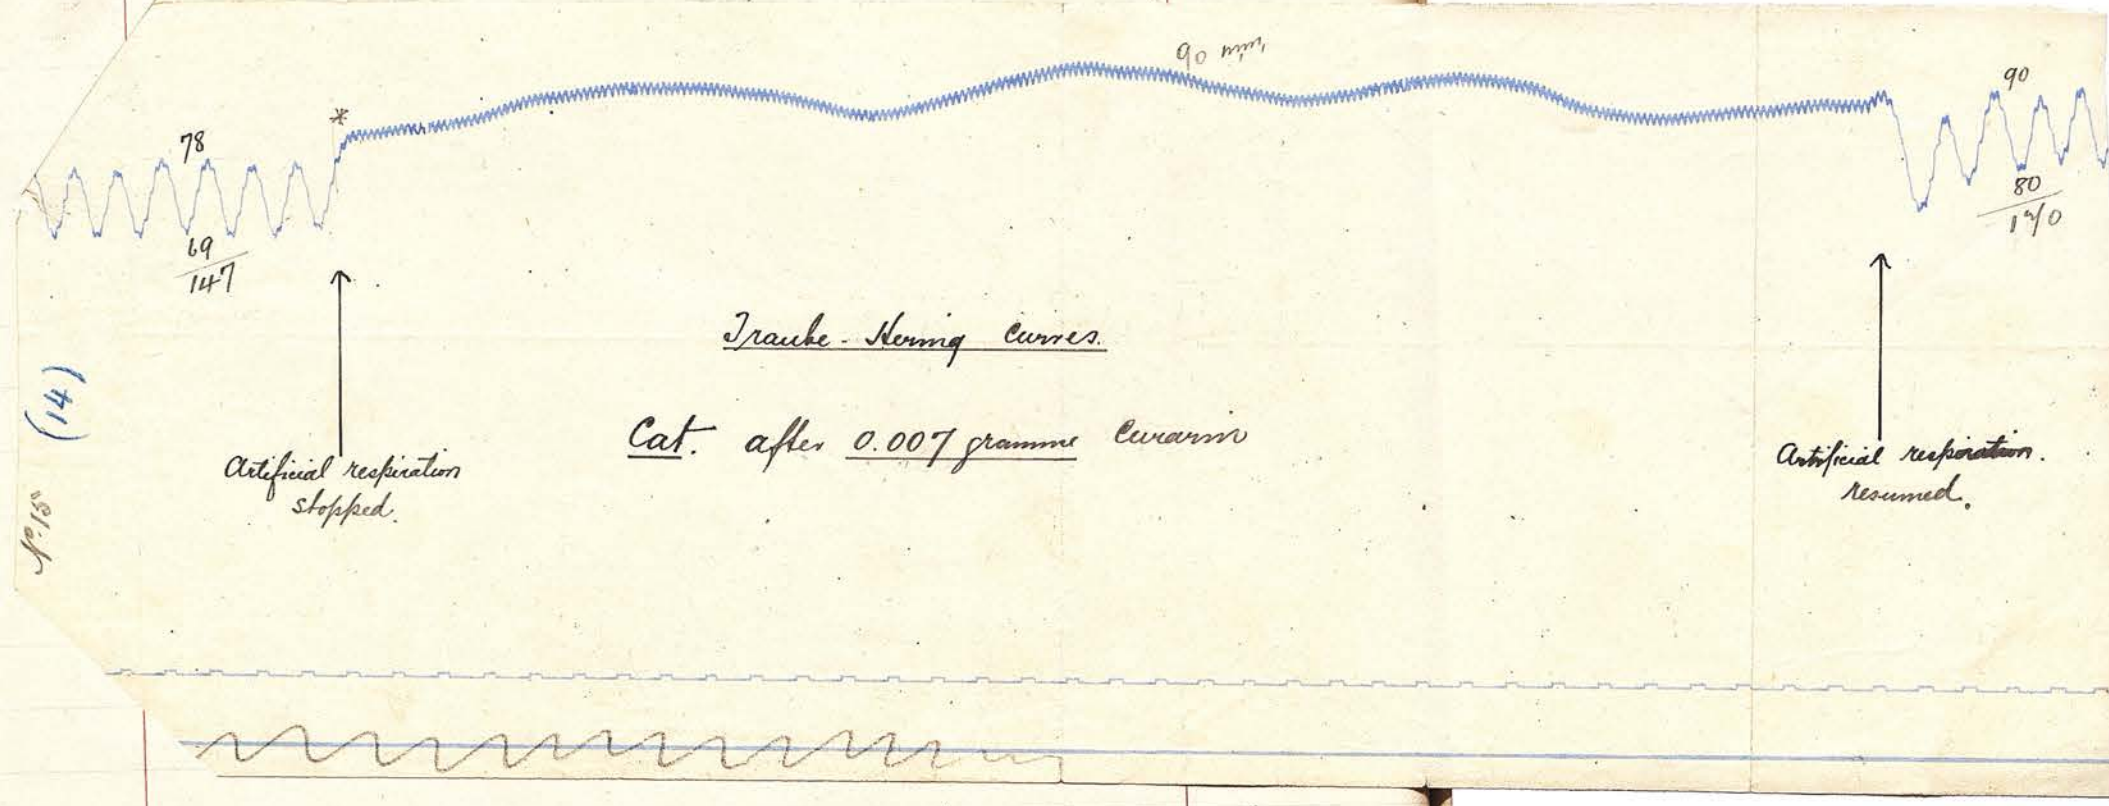 90 mm
*
78
90
69
147
80
170
Traube-Hering Curves.
Cat. after 0.007 gramme Curarin
Artificial respiration
stopped.
Artificial respiration.
resumed.
(14)